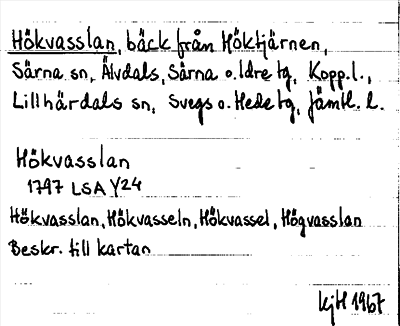 Hökvasslan, bäck från Höktjärnen,
Särna sn, Älvdals, Särna o. Idre tg, Kopp. l.,
Lillhärdals sn, Svegs o. Hede tg, Jämtl. l.
Hökvasslan
1797 LSA Y24
Hökvasslan, Hökvasseln, Hökvassel, Högvasslan
Beskr. till kartan
KjH 1967